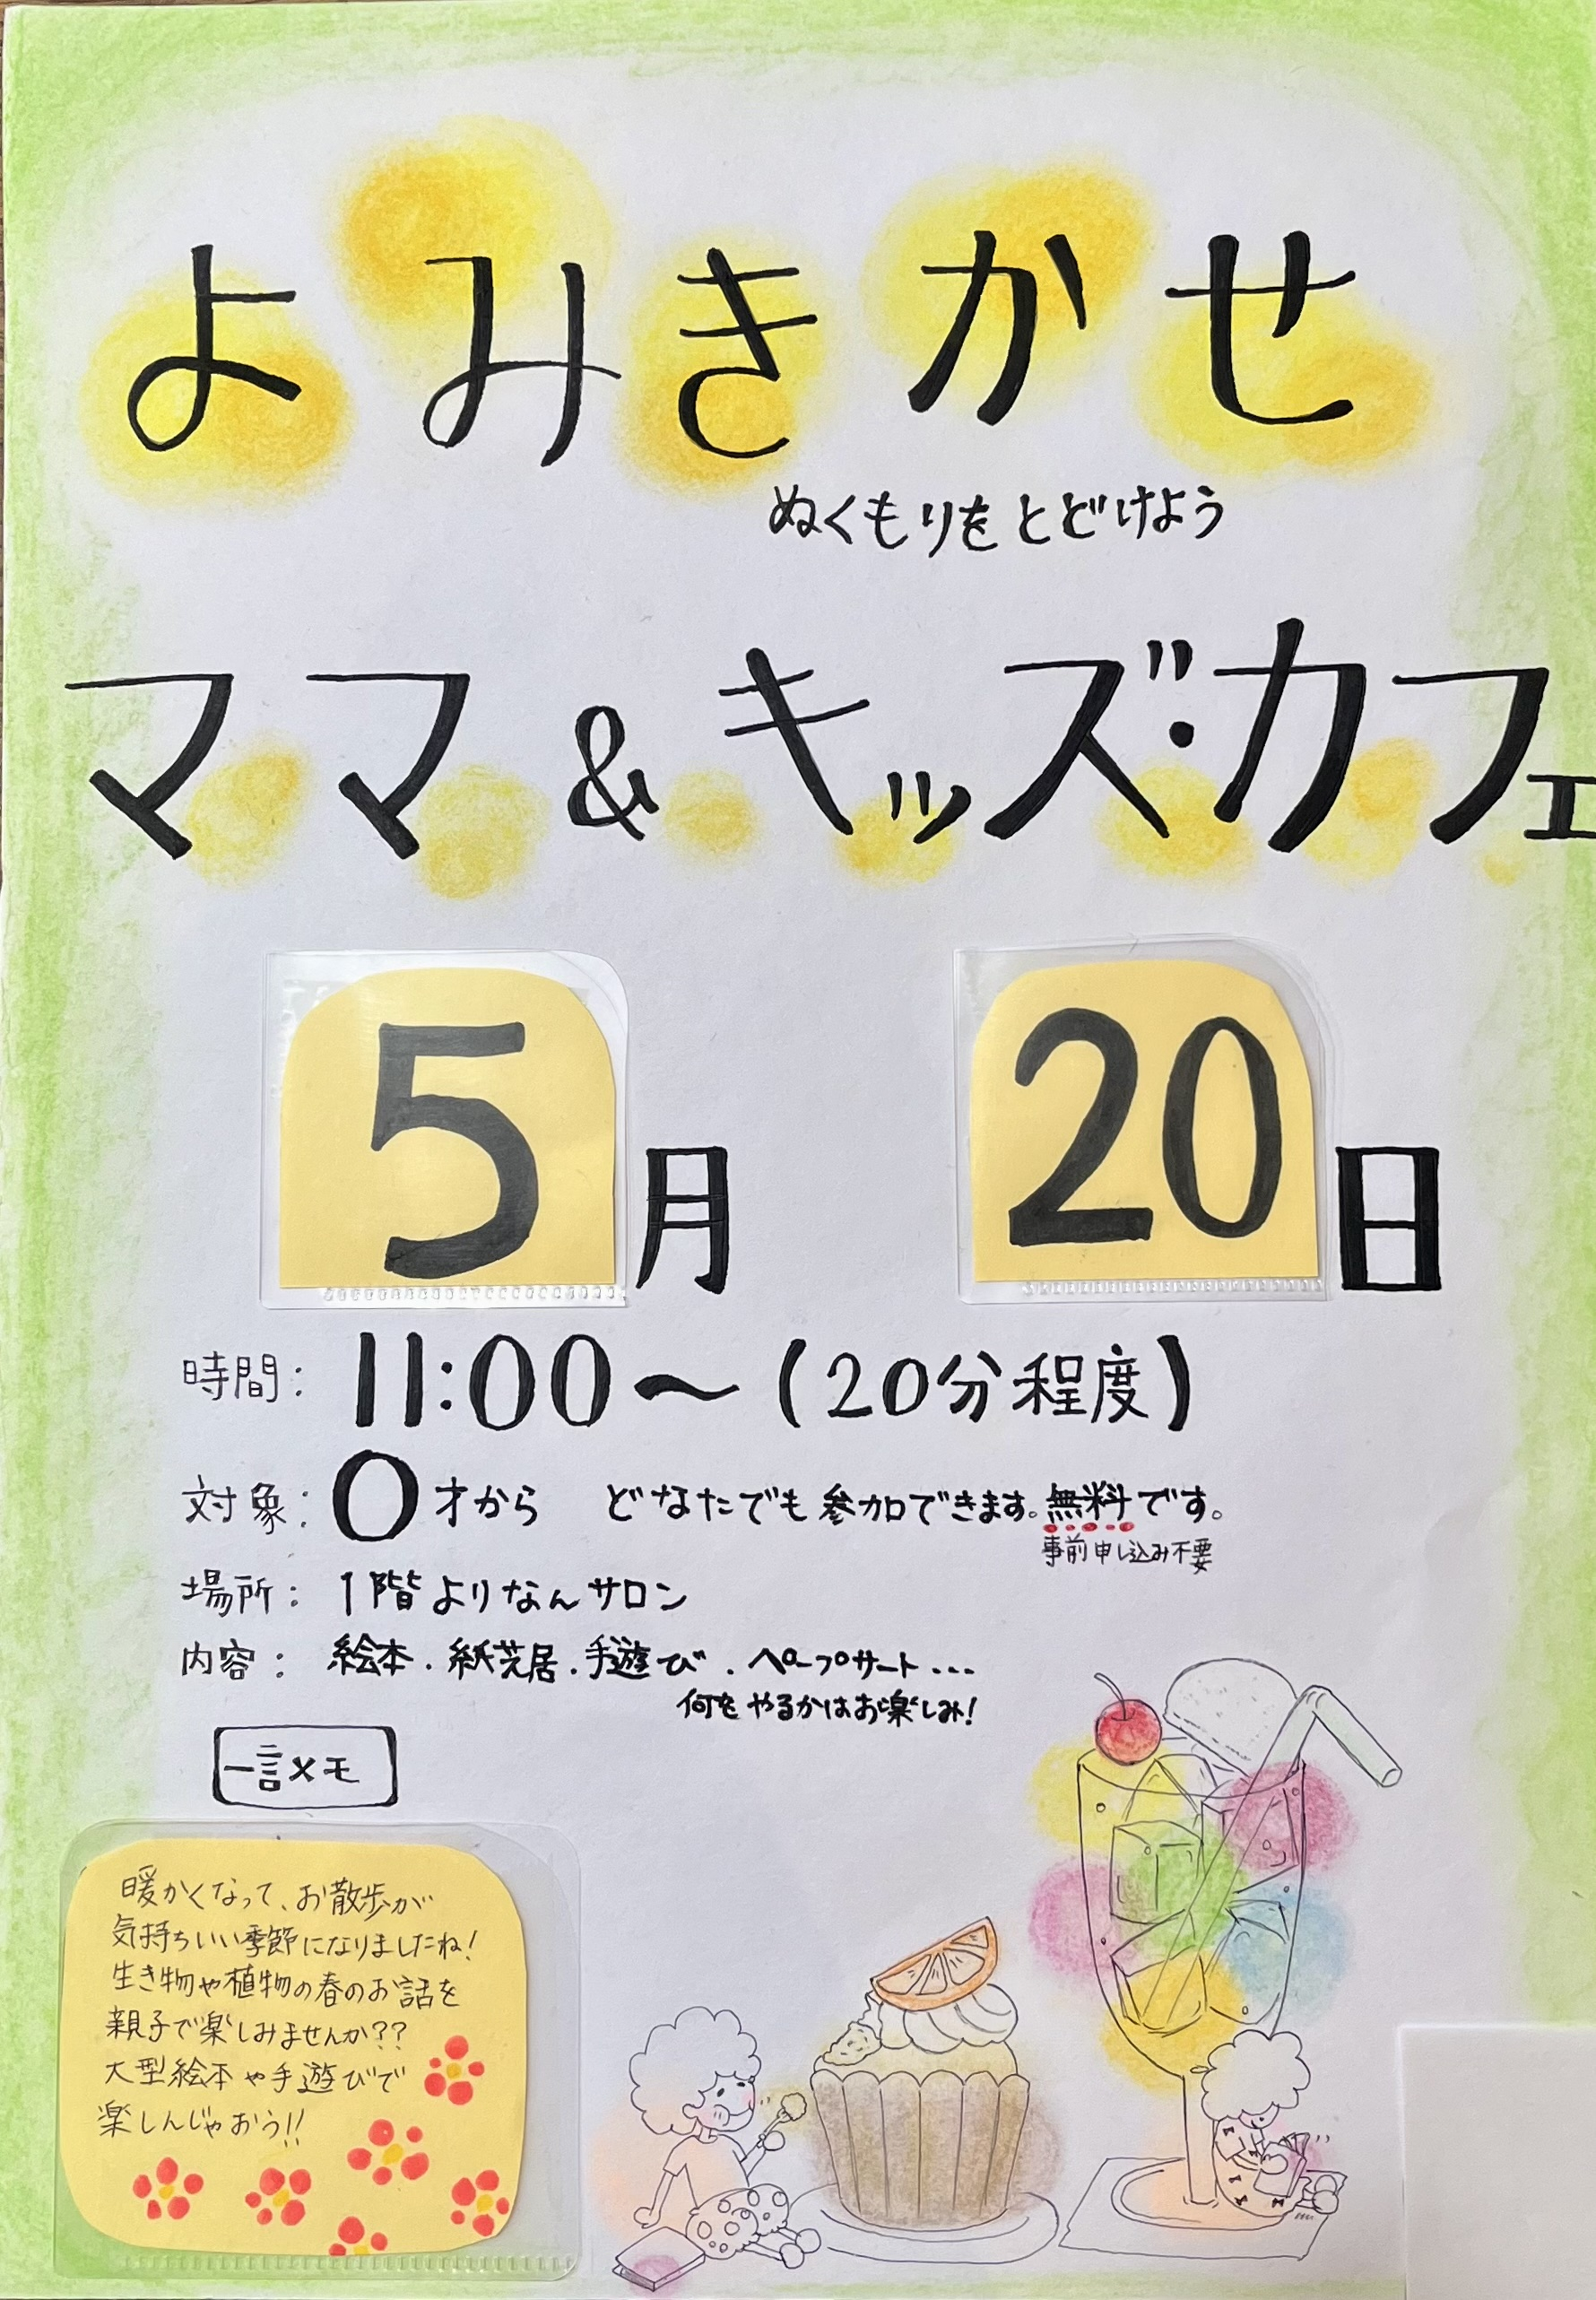 よみきかせ
ぬくもりをとどけよう
ママ&キッズ・カフェ
5月 20日
時間: 11:00〜(20分程度)
対象: 0才から どなたでも参加できます。無料です。
事前申し込み不要
場所: 1階よりなんサロン
内容: 絵本・紙芝居・手遊び・ペープサート...
何をやるかはお楽しみ!
一言メモ
暖かくなって、お散歩が
気持ちいい季節になりましたね!
生き物や植物の春のお話を
親子で楽しみませんか??
大型絵本や手遊びで
楽しんじゃおう!!